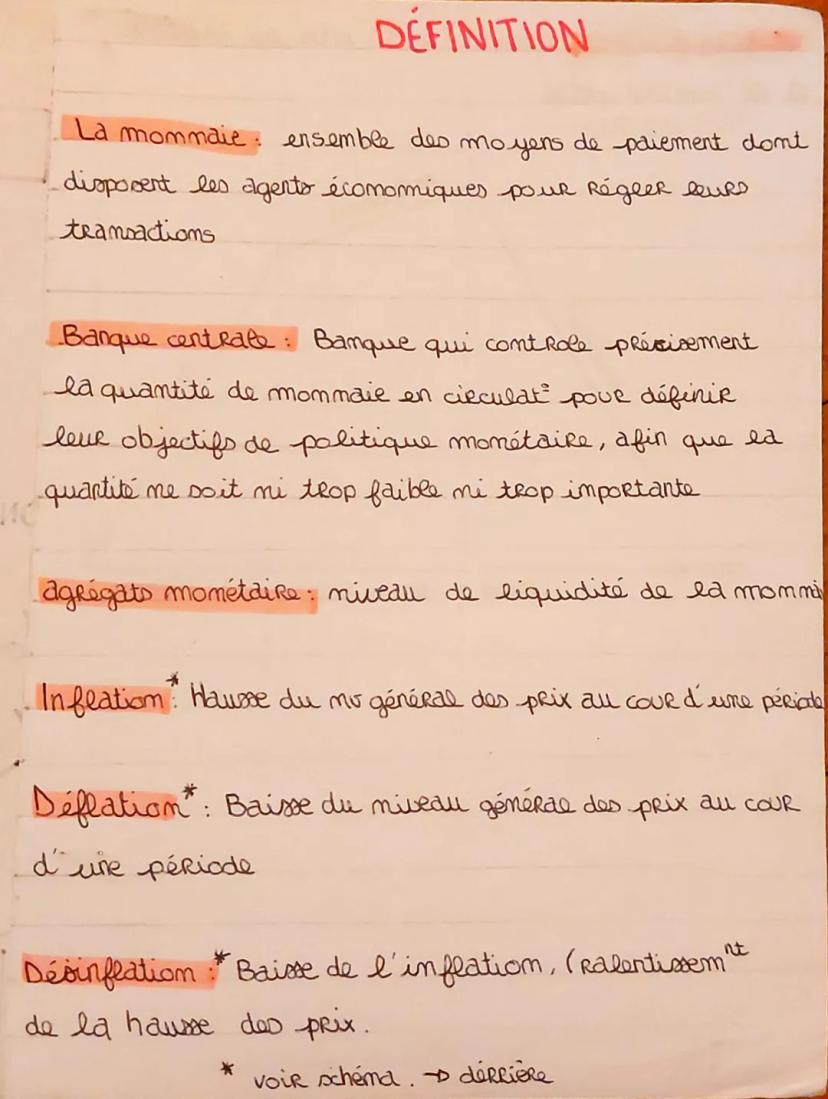 DÉFINITION
La mommaie : ensemble des moyens de paiement dont
disposent les agents économiques pour Régler leurs
transactions
Banque centrale : Banque qui controle précisement
la quantité de mommaie en circulat° pour définir
leur objectifs de politique monétaire, afin que la
quantité ne soit ni trop faible ni trop importante
agrégats monétaire : niveau de liquidité de la
Inflation* : Hausse du nv général des prix au cour d'une période
Déflation* : Baisse du niveau général des prix au cour
d'une période
Désinflation :* Baisse de l'inflation, (Ralentissemnt
de la hausse des prix.
* voir schéma. → dérrière